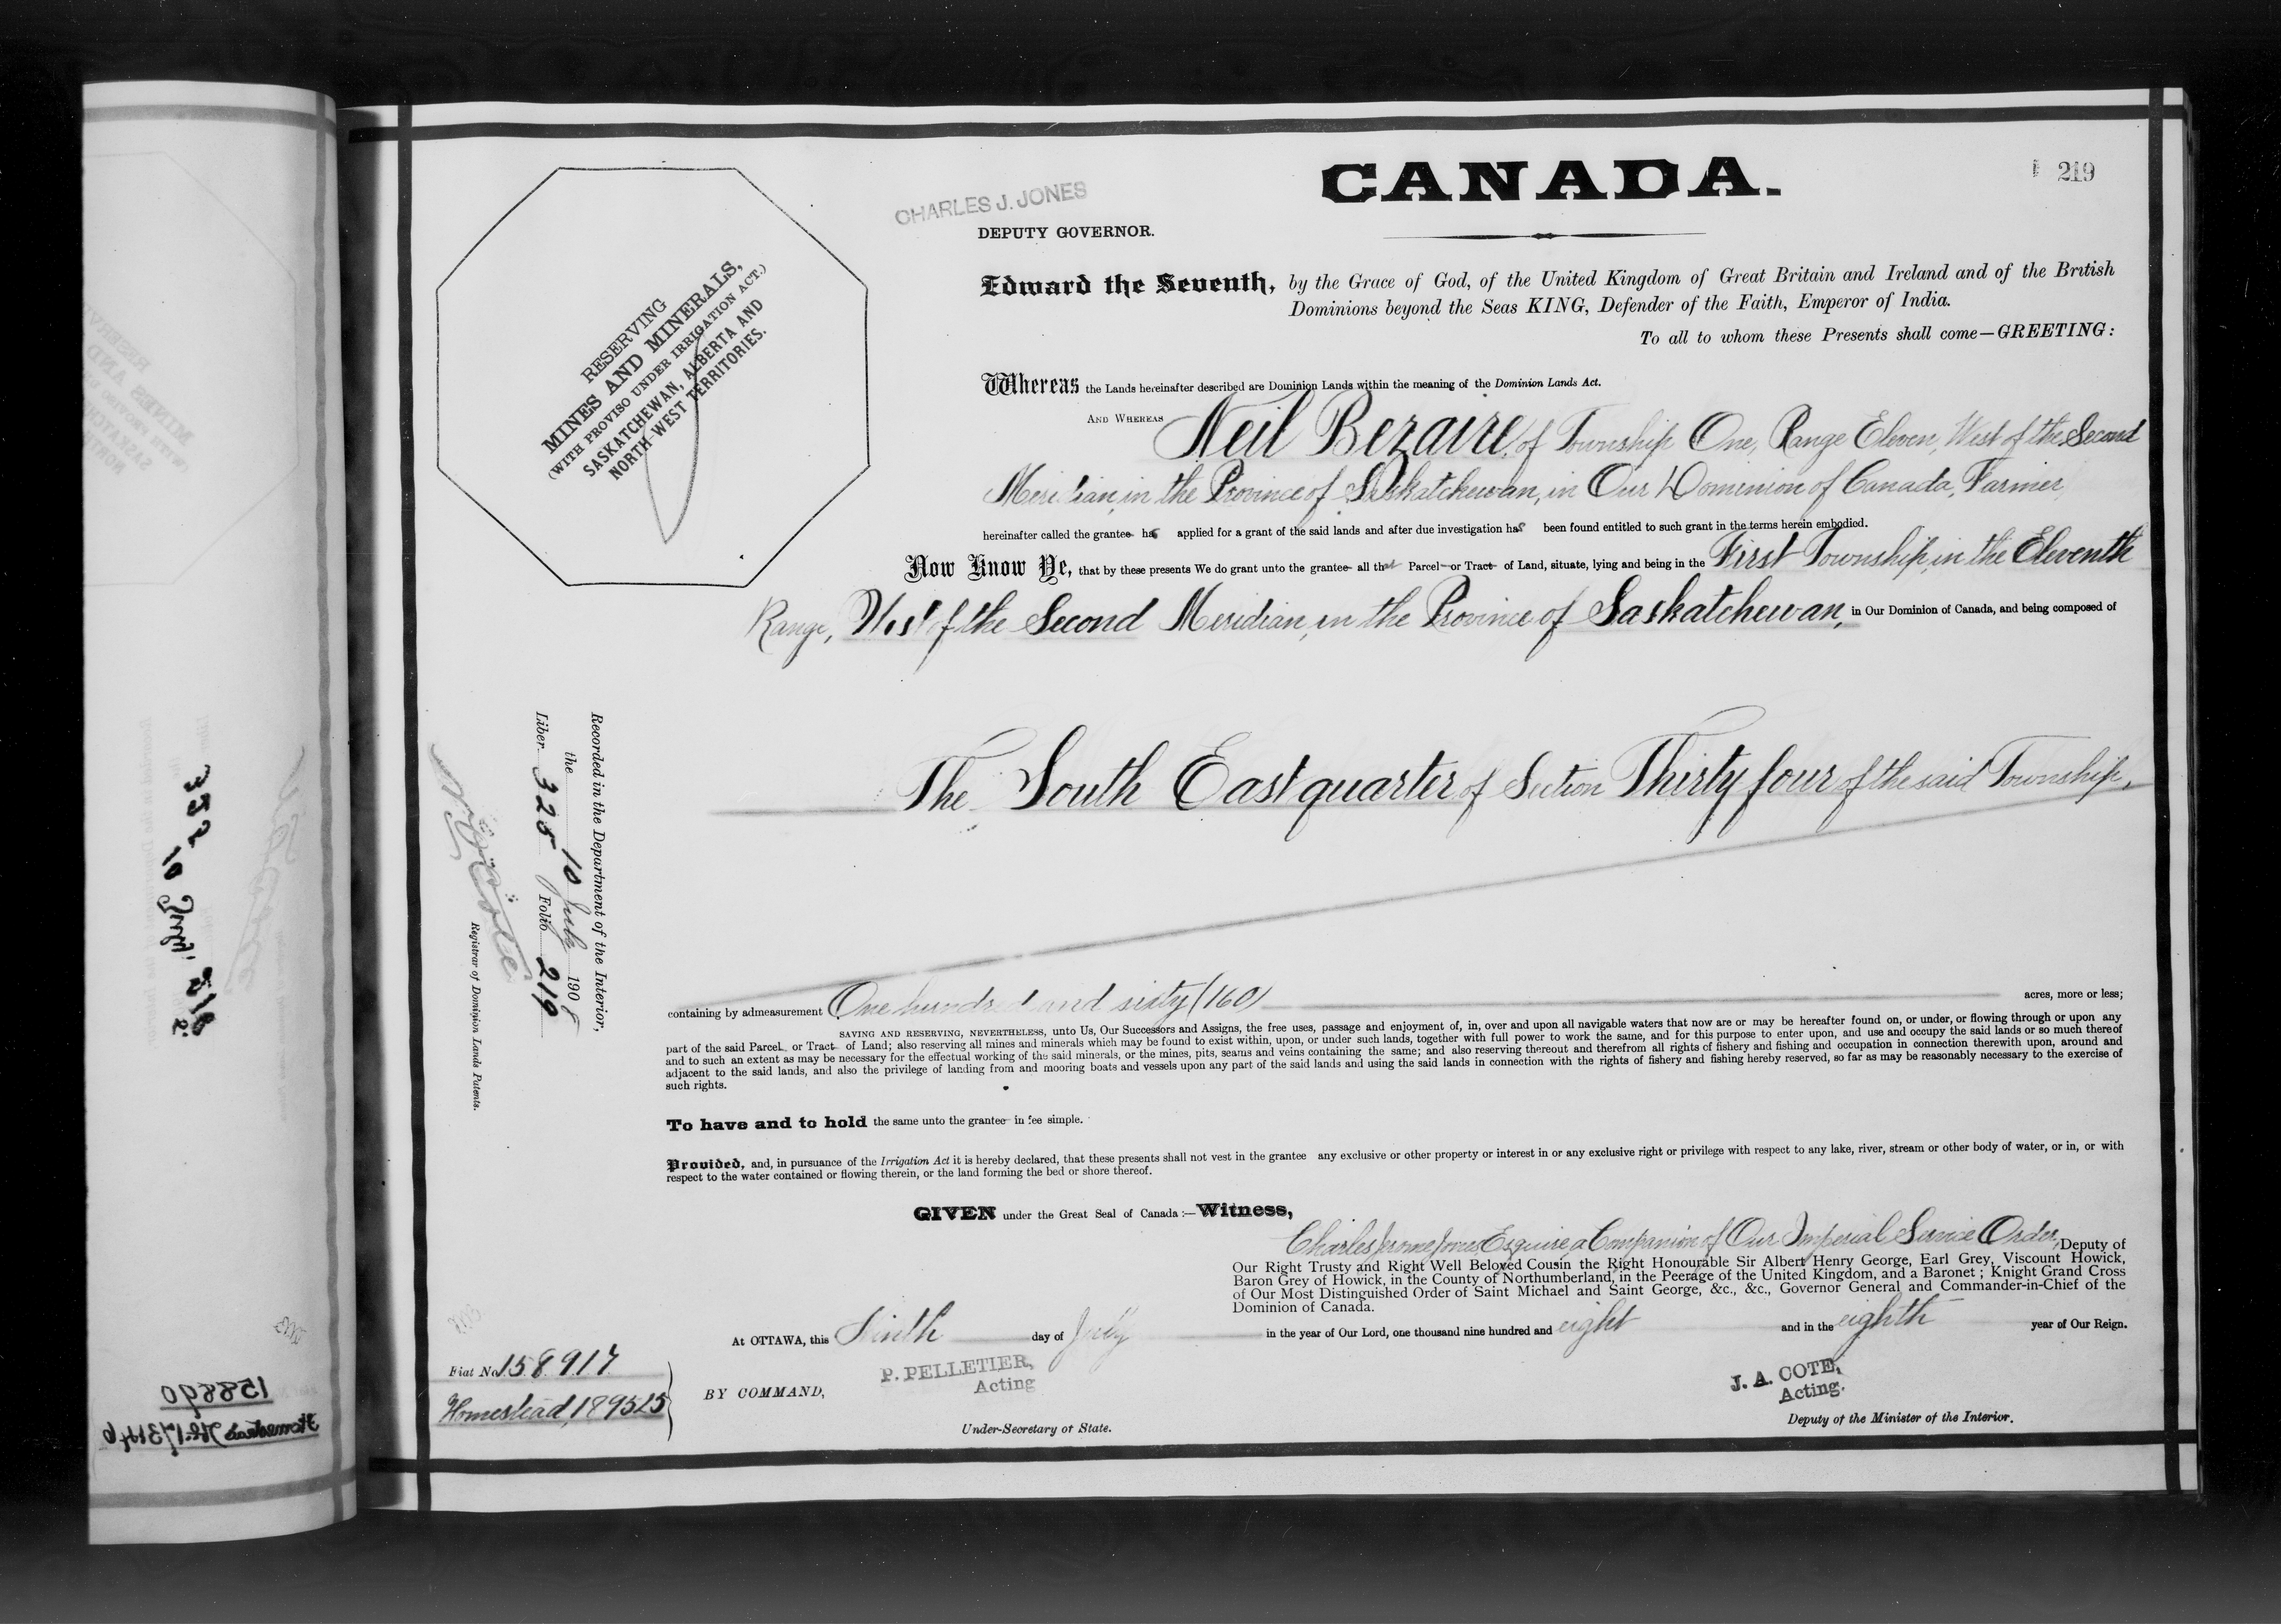 219
CANADA.
CHARLES J. JONES
DEPUTY GOVERNOR.
RESERVING
MINES AND MINERALS,
(WITH PROVISO UNDER IRRIGATION ACT.)
SASKATCHEWAN, ALBERTA AND
NORTH-WEST TERRITORIES.
Edward the Seventh, by the Grace of God, of the United Kingdom of Great Britain and Ireland and of the British
Dominions beyond the Seas KING, Defender of the Faith, Emperor of India.
To all to whom these Presents shall come—GREETING:
Whereas the Lands hereinafter described are Dominion Lands within the meaning of the Dominion Lands Act.
AND WHEREAS Neil Bezaire, of Township One, Range Eleven, West of the Second
Meridian, in the Province of Saskatchewan, in Our Dominion of Canada, Farmer,
hereinafter called the grantee has applied for a grant of the said lands and after due investigation has been found entitled to such grant in the terms herein embodied.
Now Know Ye, that by these presents We do grant unto the grantee all that Parcel or Tract of Land, situate, lying and being in the First Township, in the Eleventh
Range, West of the Second Meridian, in the Province of Saskatchewan, in Our Dominion of Canada, and being composed of
The South East quarter of Section Thirty four of the said Township,
containing by admeasurement One hundred and sixty (160) acres, more or less;
SAVING AND RESERVING, NEVERTHELESS, unto Us, Our Successors and Assigns, the free uses, passage and enjoyment of, in, over and upon all navigable waters that now are or may be hereafter found on, or under, or flowing through or upon any
part of the said Parcel or Tract of Land; also reserving all mines and minerals which may be found to exist within, upon, or under such lands, together with full power to work the same, and for this purpose to enter upon, and use and occupy the said lands or so much thereof
and to such an extent as may be necessary for the effectual working of the said minerals, or the mines, pits, seams and veins containing the same; and also reserving thereout and therefrom all rights of fishery and fishing and occupation in connection therewith upon, around and
adjacent to the said lands, and also the privilege of landing from and mooring boats and vessels upon any part of the said lands and using the said lands in connection with the rights of fishery and fishing hereby reserved, so far as may be reasonably necessary to the exercise of
such rights.
To have and to hold the same unto the grantee in fee simple.
Provided, and, in pursuance of the Irrigation Act it is hereby declared, that these presents shall not vest in the grantee any exclusive or other property or interest in or any exclusive right or privilege with respect to any lake, river, stream or other body of water, or in, or with
respect to the water contained or flowing therein, or the land forming the bed or shore thereof.
GIVEN under the Great Seal of Canada:—Witness,
Charles Jerome Jones Esquire, a Companion of Our Imperial Service Order, Deputy of
Our Right Trusty and Right Well Beloved Cousin the Right Honourable Sir Albert Henry George, Earl Grey, Viscount Howick,
Baron Grey of Howick, in the County of Northumberland, in the Peerage of the United Kingdom, and a Baronet; Knight Grand Cross
of Our Most Distinguished Order of Saint Michael and Saint George, &c., &c., Governor General and Commander-in-Chief of the
Dominion of Canada.
At OTTAWA, this Ninth day of July in the year of Our Lord, one thousand nine hundred and eight and in the eighth year of Our Reign.
BY COMMAND,
P. PELLETIER,
Acting
Under-Secretary of State.
J. A. COTE,
Acting.
Deputy of the Minister of the Interior.
Recorded in the Department of the Interior,
the 10 July 1908
Liber 325 Folio 219
N. O. Coté
Registrar of Dominion Lands Patents.
Fiat No. 158917
Homestead, 189525